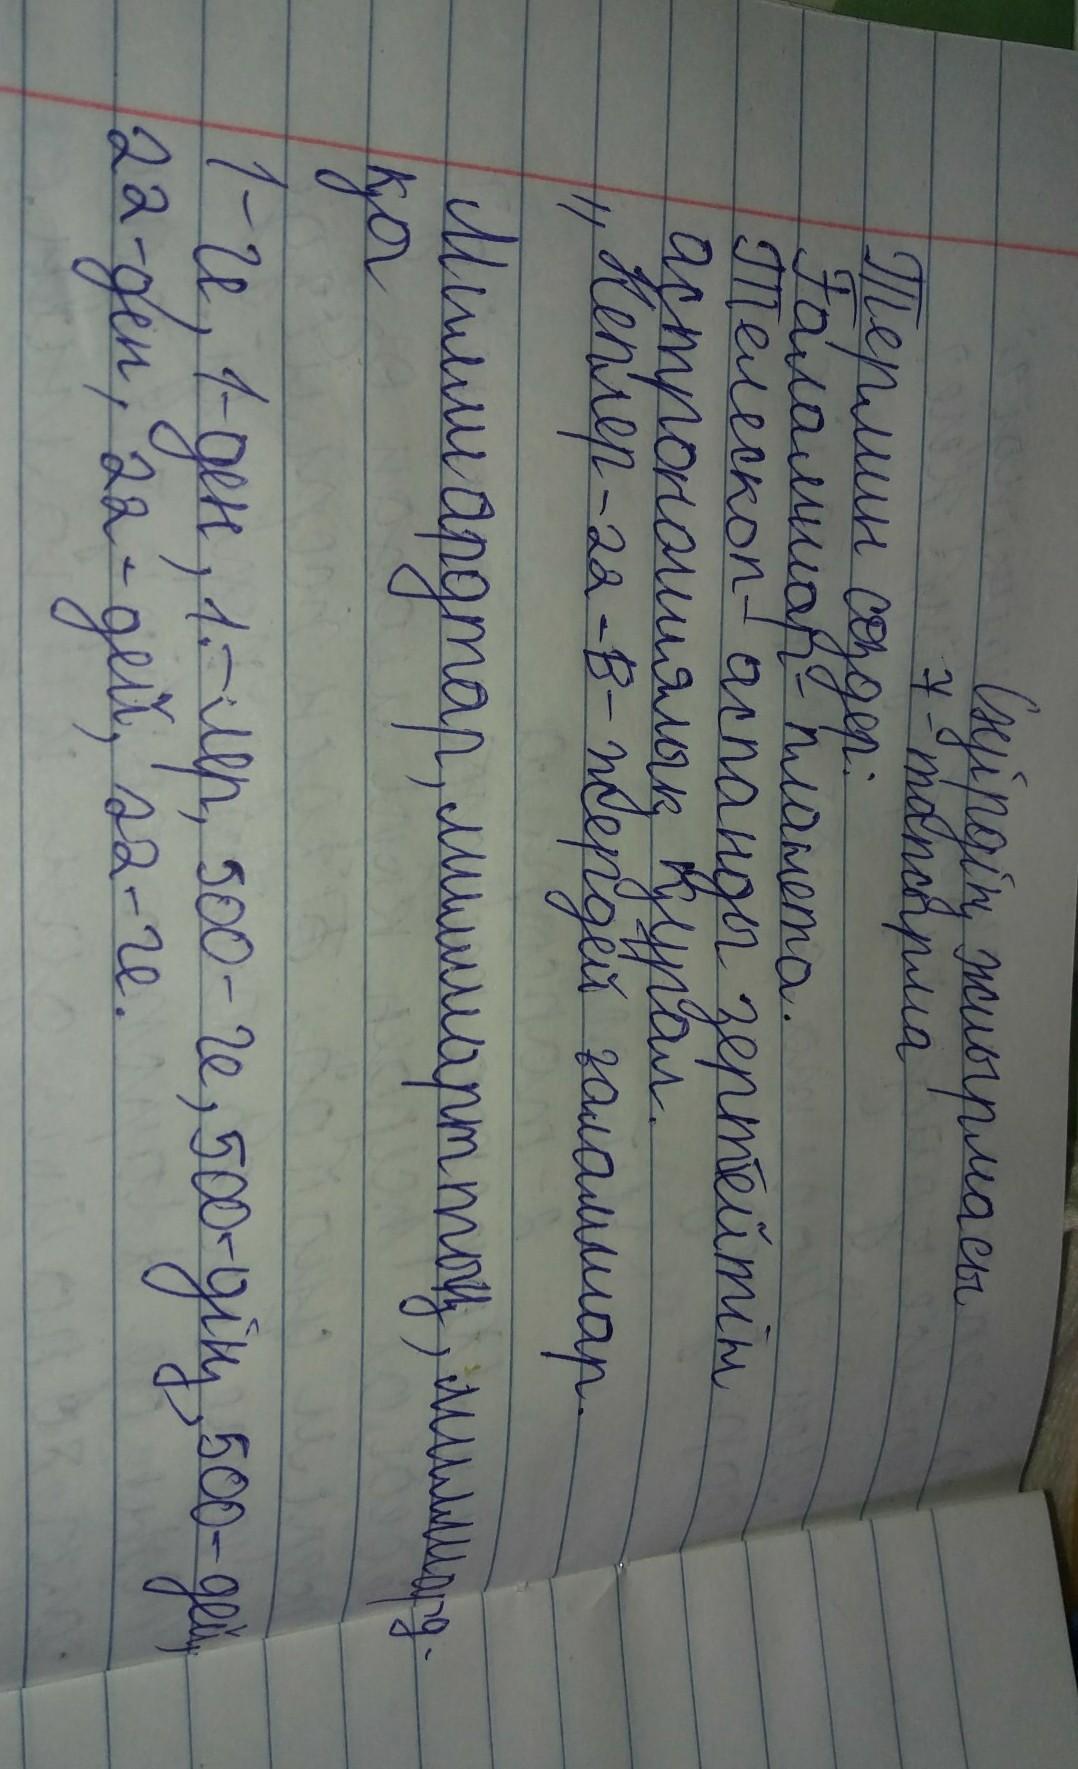 Сүңгірдің жиырмасы
7-тапсырма
Термин сөздер:
Ғаламшар - планета.
Телескоп - аспанды зерттейтін
астрономиялық құрал.
"Кеплер-22-В- жердей ғаламшар.
Миллиардтар, миллиарттың, миллиард-
қа
1-ге, 1-ден, 1.-лер, 500-ге, 500-дің, 500-дей,
22-ден, 22-дей, 22-ге.